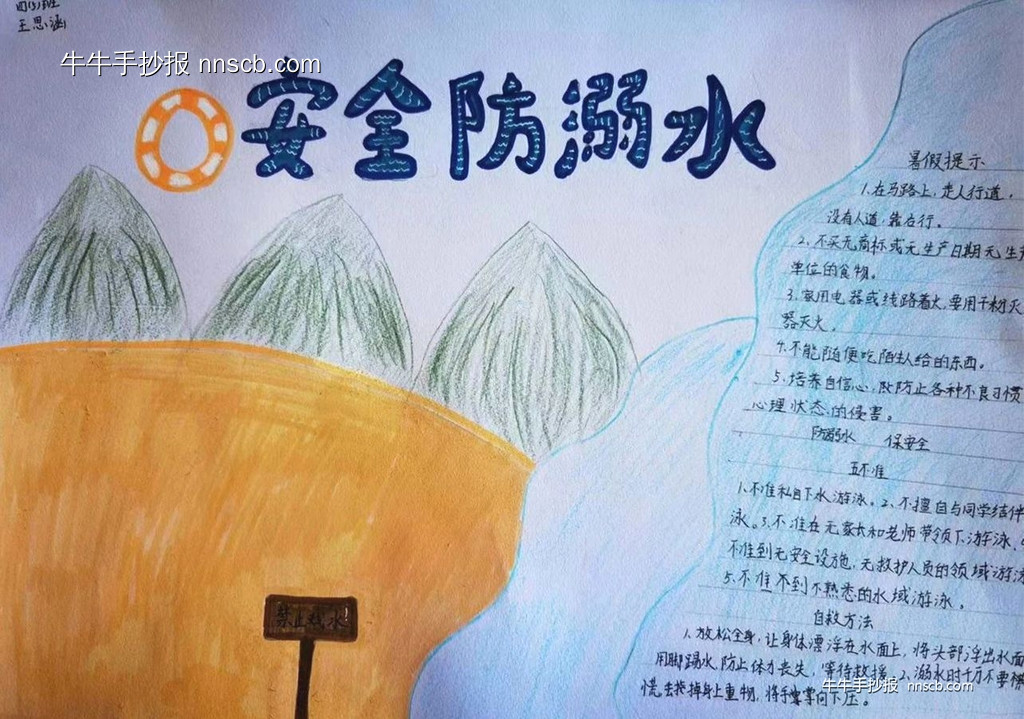 四(3)班
王思涵
牛牛手抄报 nnscb.com
安全防溺水
暑假提示
1.在马路上,走人行道,
没有人道,靠右行。
2.不买无商标或无生产日期无生产
单位的食物。
3.家用电器或线路着火,要用干粉灭
器灭火。
4.不能随便吃陌生人给的东西。
5.培养自信心,防止各种不良习惯
心理状态的侵害。
防溺水 保安全
五不准
1.不准私自下水游泳。2.不擅自与同学结伴
泳。3.不准在无家长和老师带领下游泳。
不准到无安全设施,无救护人员的领域游泳
5.不准不到不熟悉的水域游泳。
自救方法
1.放松全身,让身体漂浮在水面上,将头部浮出水面
用脚踢水,防止体力丧失,等待救援。2.溺水时千万不要
慌,去掉身上重物,将手掌向下压。
禁止戏水
牛牛手抄报 nnscb.com